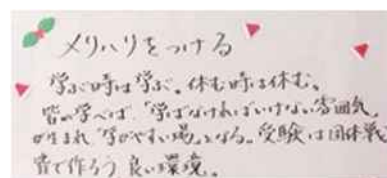 メリハリをつける
学ぶ時は学ぶ。休む時は休む。
皆が学べば、「学ばなければいけない雰囲気」
が生まれ「学びやすい場」となる。受験は団体戦
皆で作ろう 良い環境。